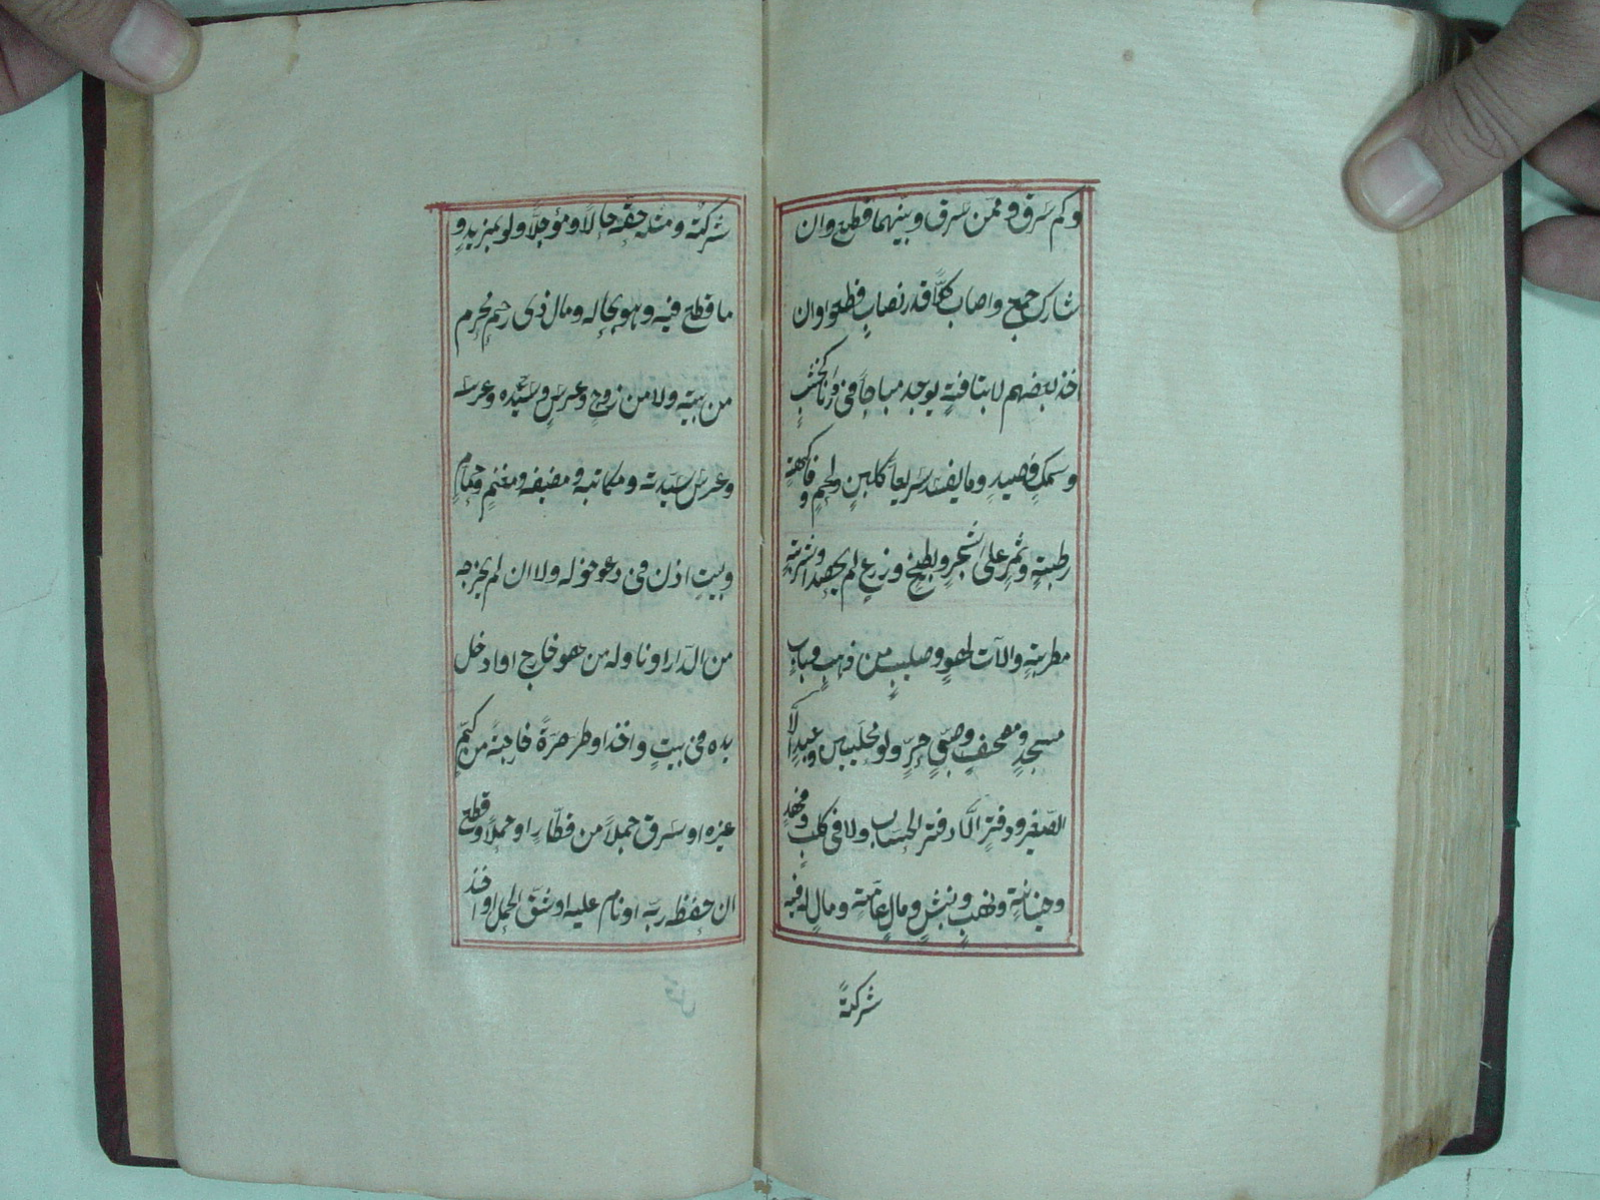 وكم سرق وممّن سرق وبينهما قطع وان
شارك جمع واصاب كلًّا قدر نصاب قطعوا وان
اخذ بعضهم لا بتافه يوجد مباحًا فى دارنا كخشبٍ
وسمكٍ وصيدٍ وما يفسد سريعاً كلبنٍ ولحمٍ وفاكهةٍ
رطبةٍ وثمرٍ على الشجر وبطيخٍ وزرعٍ لم يحصد واشربةٍ
مطربةٍ والآت لهوٍ وصليبٍ من ذهبٍ وباب
مسجدٍ ومصحفٍ وصبىٍّ حرٍّ ولو محليين وعبدٍ الّا
الصّغير ودفترٍ الّا دفتر الحساب ولا فى كلبٍ وفهدٍ
وخيانةٍ ونهبٍ ونبشٍ ومال عامّةٍ ومالٍ له فيه
شركةٌ
شركة ومثله حقه حالًّا ومؤجلًّا ولو بمزيدٍ و
ما قطع فيه وهو بحاله ومال ذى رحمٍ محرم
من بيته ولا من زوجٍ وعرسٍ وسيّده وعرسه
وعرس سيّدته ومكاتبه ومضيفه ومغنمٍ وحمّامٍ
وبيتٍ اذن فى دخوله ولا ان لم يخرجه
من الدّار او ناوله من هو خارج او ادخل
يده فى بيتٍ واخذ او طرّ صرّةً خارجةً من كمّ
غيره او سرق جملاً من قطارٍ او حملاً وقطع
ان حفظه ربّه او نام عليه او شقّ الحمل او اخذ